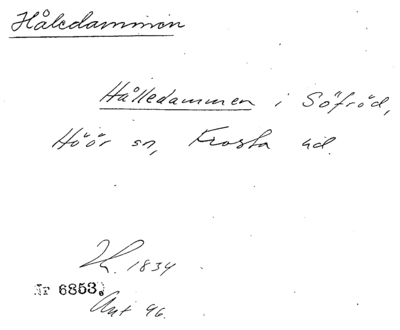 Håledammen
Hålledammen i Söfröd,
Höör sn, Frosta hd.
1834
Nr 6853.
Akt 46.